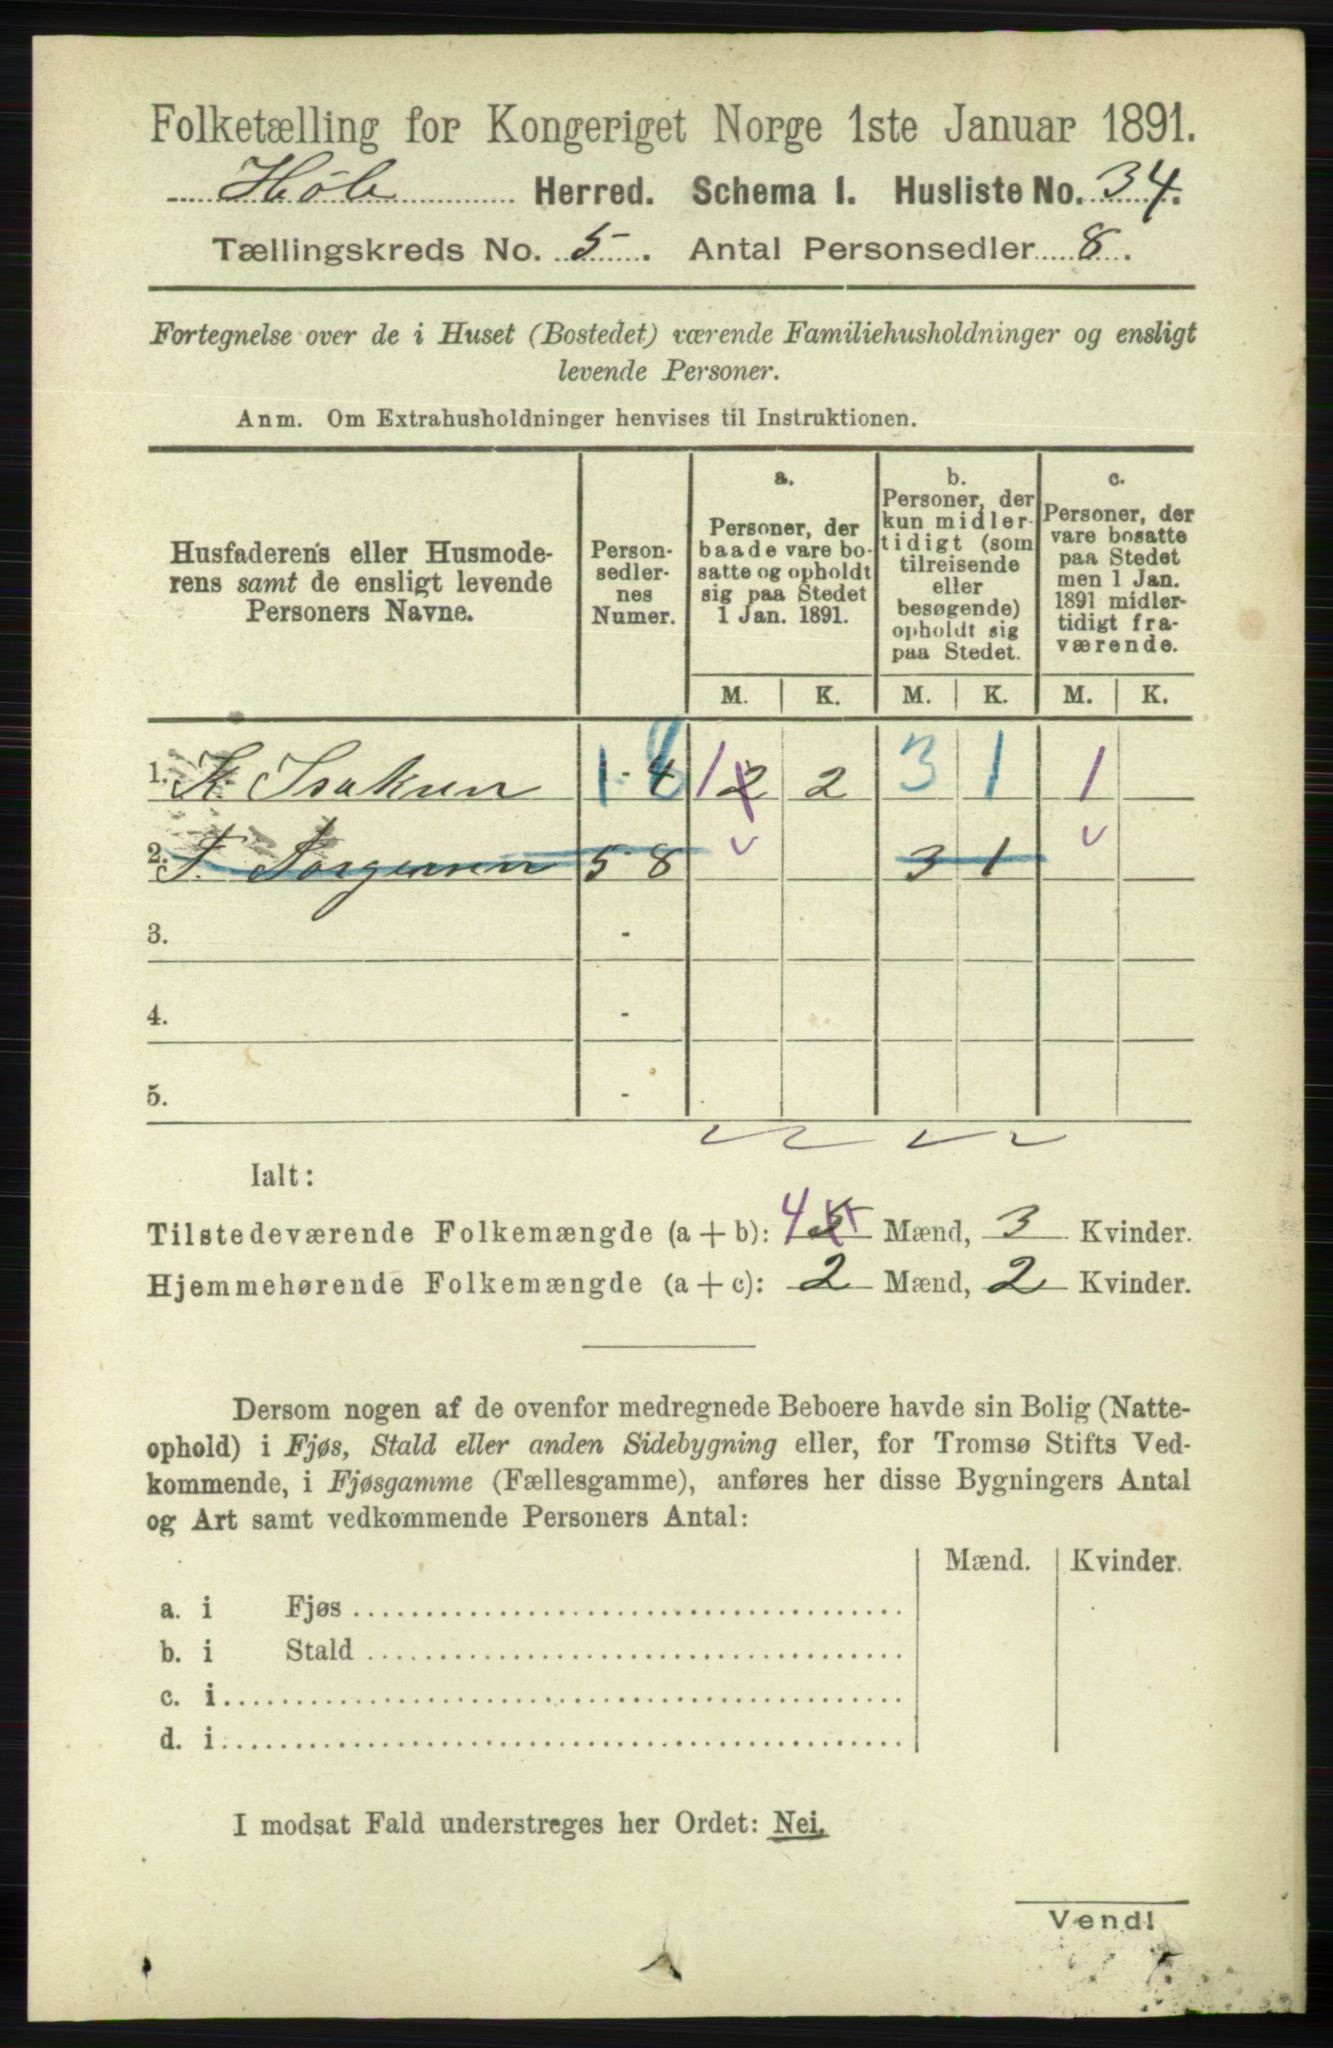 Folketælling for Kongeriget Norge 1ste Januar 1891.
Høle Herred. Schema I. Husliste No. 34.
Tællingskreds No. 5. Antal Personsedler 8.
Fortegnelse over de i Huset (Bostedet) værende Familiehusholdninger og ensligt
levende Personer.
Anm. Om Extrahusholdninger henvises til Instruktionen.
Husfaderens eller Husmode-
rens samt de ensligt levende
Personers Navne.
Person-
sedler-
nes
Numer.
a.
Personer, der
baade vare bo-
satte og opholdt
sig paa Stedet
1 Jan. 1891.
b.
Personer, der
kun midler-
tidigt (som
tilreisende
eller
besøgende)
opholdt sig
paa Stedet.
c.
Personer, der
vare bosatte
paa Stedet
men 1 Jan.
1891 midler-
tidigt fra-
værende.
M. K. M. K. M. K.
1. K. Isaksen 1-4 8 1 2 2 3 1 1
2. T. Torgersen 5-8 3 1
3. -
4. -
5. -
Ialt:
Tilstedeværende Folkemængde (a + b): 4 5 Mænd, 3 Kvinder.
Hjemmehørende Folkemængde (a + c): 2 Mænd, 2 Kvinder.
Dersom nogen af de ovenfor medregnede Beboere havde sin Bolig (Natte-
ophold) i Fjøs, Stald eller anden Sidebygning eller, for Tromsø Stifts Ved-
kommende, i Fjøsgamme (Fællesgamme), anføres her disse Bygningers Antal
og Art samt vedkommende Personers Antal:
Mænd. Kvinder.
a. i Fjøs
b. i Stald
c. i
d. i
I modsat Fald understreges her Ordet: Nei.
Vend!